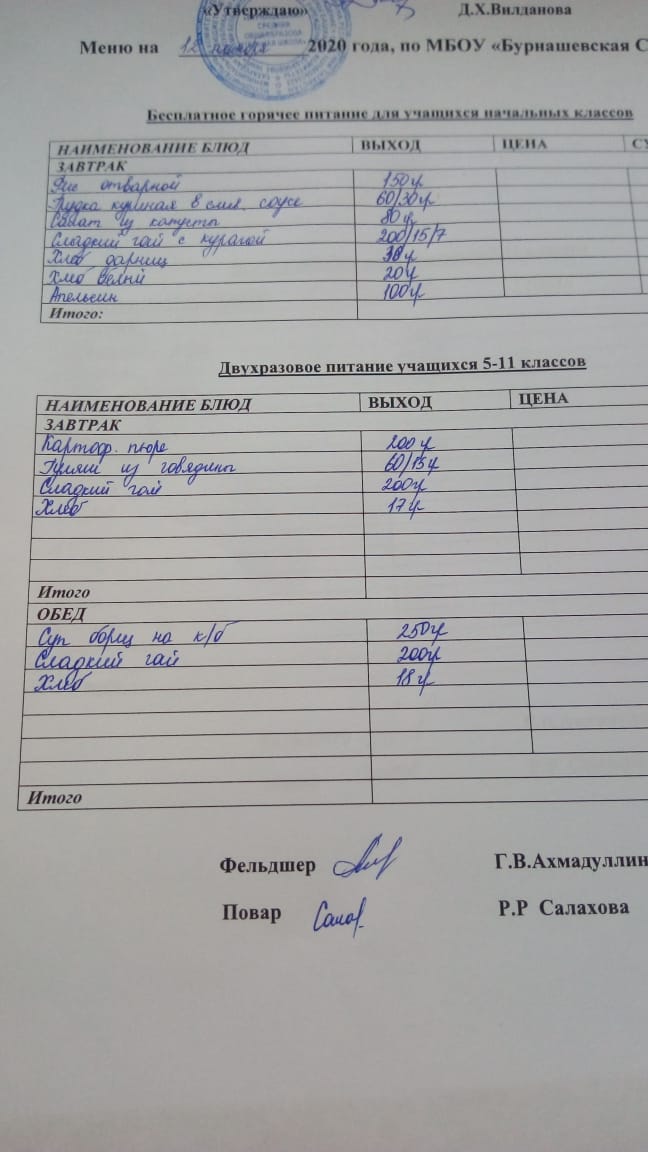 «Утверждаю» Д.Х.Вилданова
Меню на 12 ноября 2020 года, по МБОУ «Бурнашевская С
Бесплатное горячее питание для учащихся начальных классов
НАИМЕНОВАНИЕ БЛЮД ВЫХОД ЦЕНА СУ
ЗАВТРАК
Рис отварной 150г
Грудка куриная в слив. соусе 60/30г
Салат из капусты 80г
Сладкий чай с курагой 200/15/7
Хлеб дарниц 30г
Хлеб белый 20г
Апельсин 100г
Итого:
Двухразовое питание учащихся 5-11 классов
НАИМЕНОВАНИЕ БЛЮД ВЫХОД ЦЕНА
ЗАВТРАК
Картоф. пюре 200г
Гуляш из говядины 60/15г
Сладкий чай 200г
Хлеб 17г
Итого
ОБЕД
Суп борщ на к/б 250г
Сладкий чай 200г
Хлеб 18г
Итого
Фельдшер Г.В.Ахмадуллин
Повар Р.Р Салахова